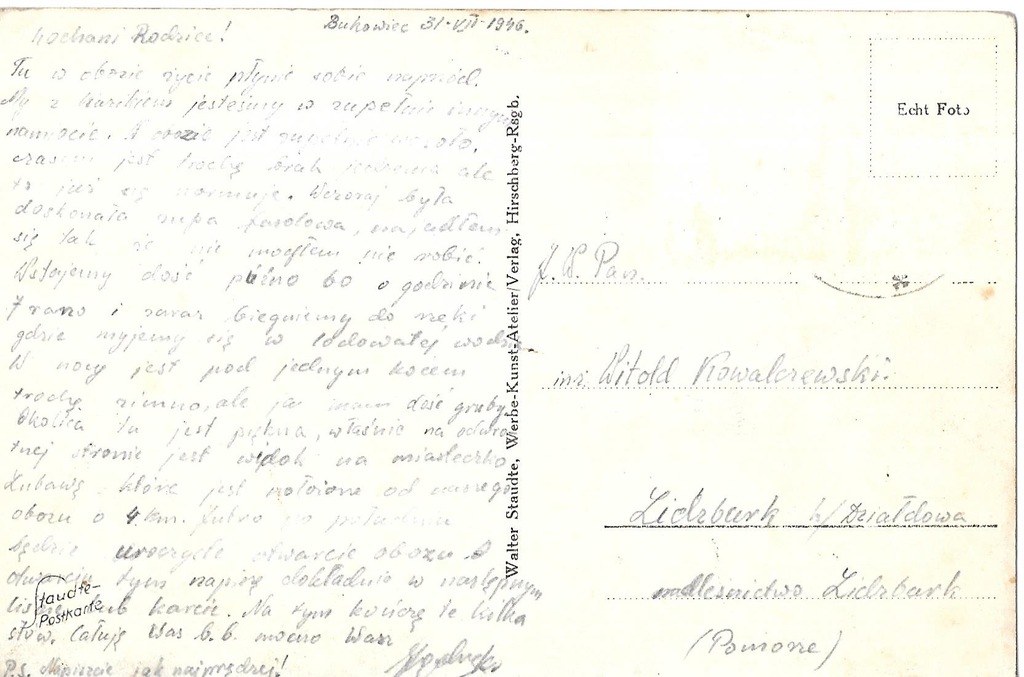 Bukowiec 31-VII-1946.
Kochani Rodzice!
Tu w obozie życie płynie sobie naprzód.
My z jesteśmy w zupełnie innym
namiocie. W obozie jest zupełnie wesoło,
czasem jest trochę brak jedzenia ale
to już się normuje. Wczoraj była
doskonała zupa fasolowa, najadłem
się tak że nie mogłem nic robić.
Wstajemy dość późno bo o godzinie
7 rano i zaraz biegniemy do rzeki
gdzie myjemy się w lodowatej wodzie
W nocy jest pod jednym kocem
trochę zimno, ale ja mam dość gruby
Okolica tu jest piękna, właśnie na odwro
tnej stronie jest widok na miasteczko
które jest położone od naszego
obozu o 4 km. Jutro po południu
będzie uroczyste otwarcie obozu o
tym napiszę dokładnie w następnym
liście lub karcie. Na tym kończę te kilka
słów. Całuję Was b. b. mocno Wasz
P.S. Napiszcie jak najprędzej!
Staudte-
Postkarte
Walter Staudte, Werbe-Kunst-Atelier/Verlag, Hirschberg-Rsgb.
Echt Foto
J. W. Pan.
inż. Witold Kowalczewski
Lidzbark k/Działdowa
nadleśnictwo Lidzbark
(Pomorze)